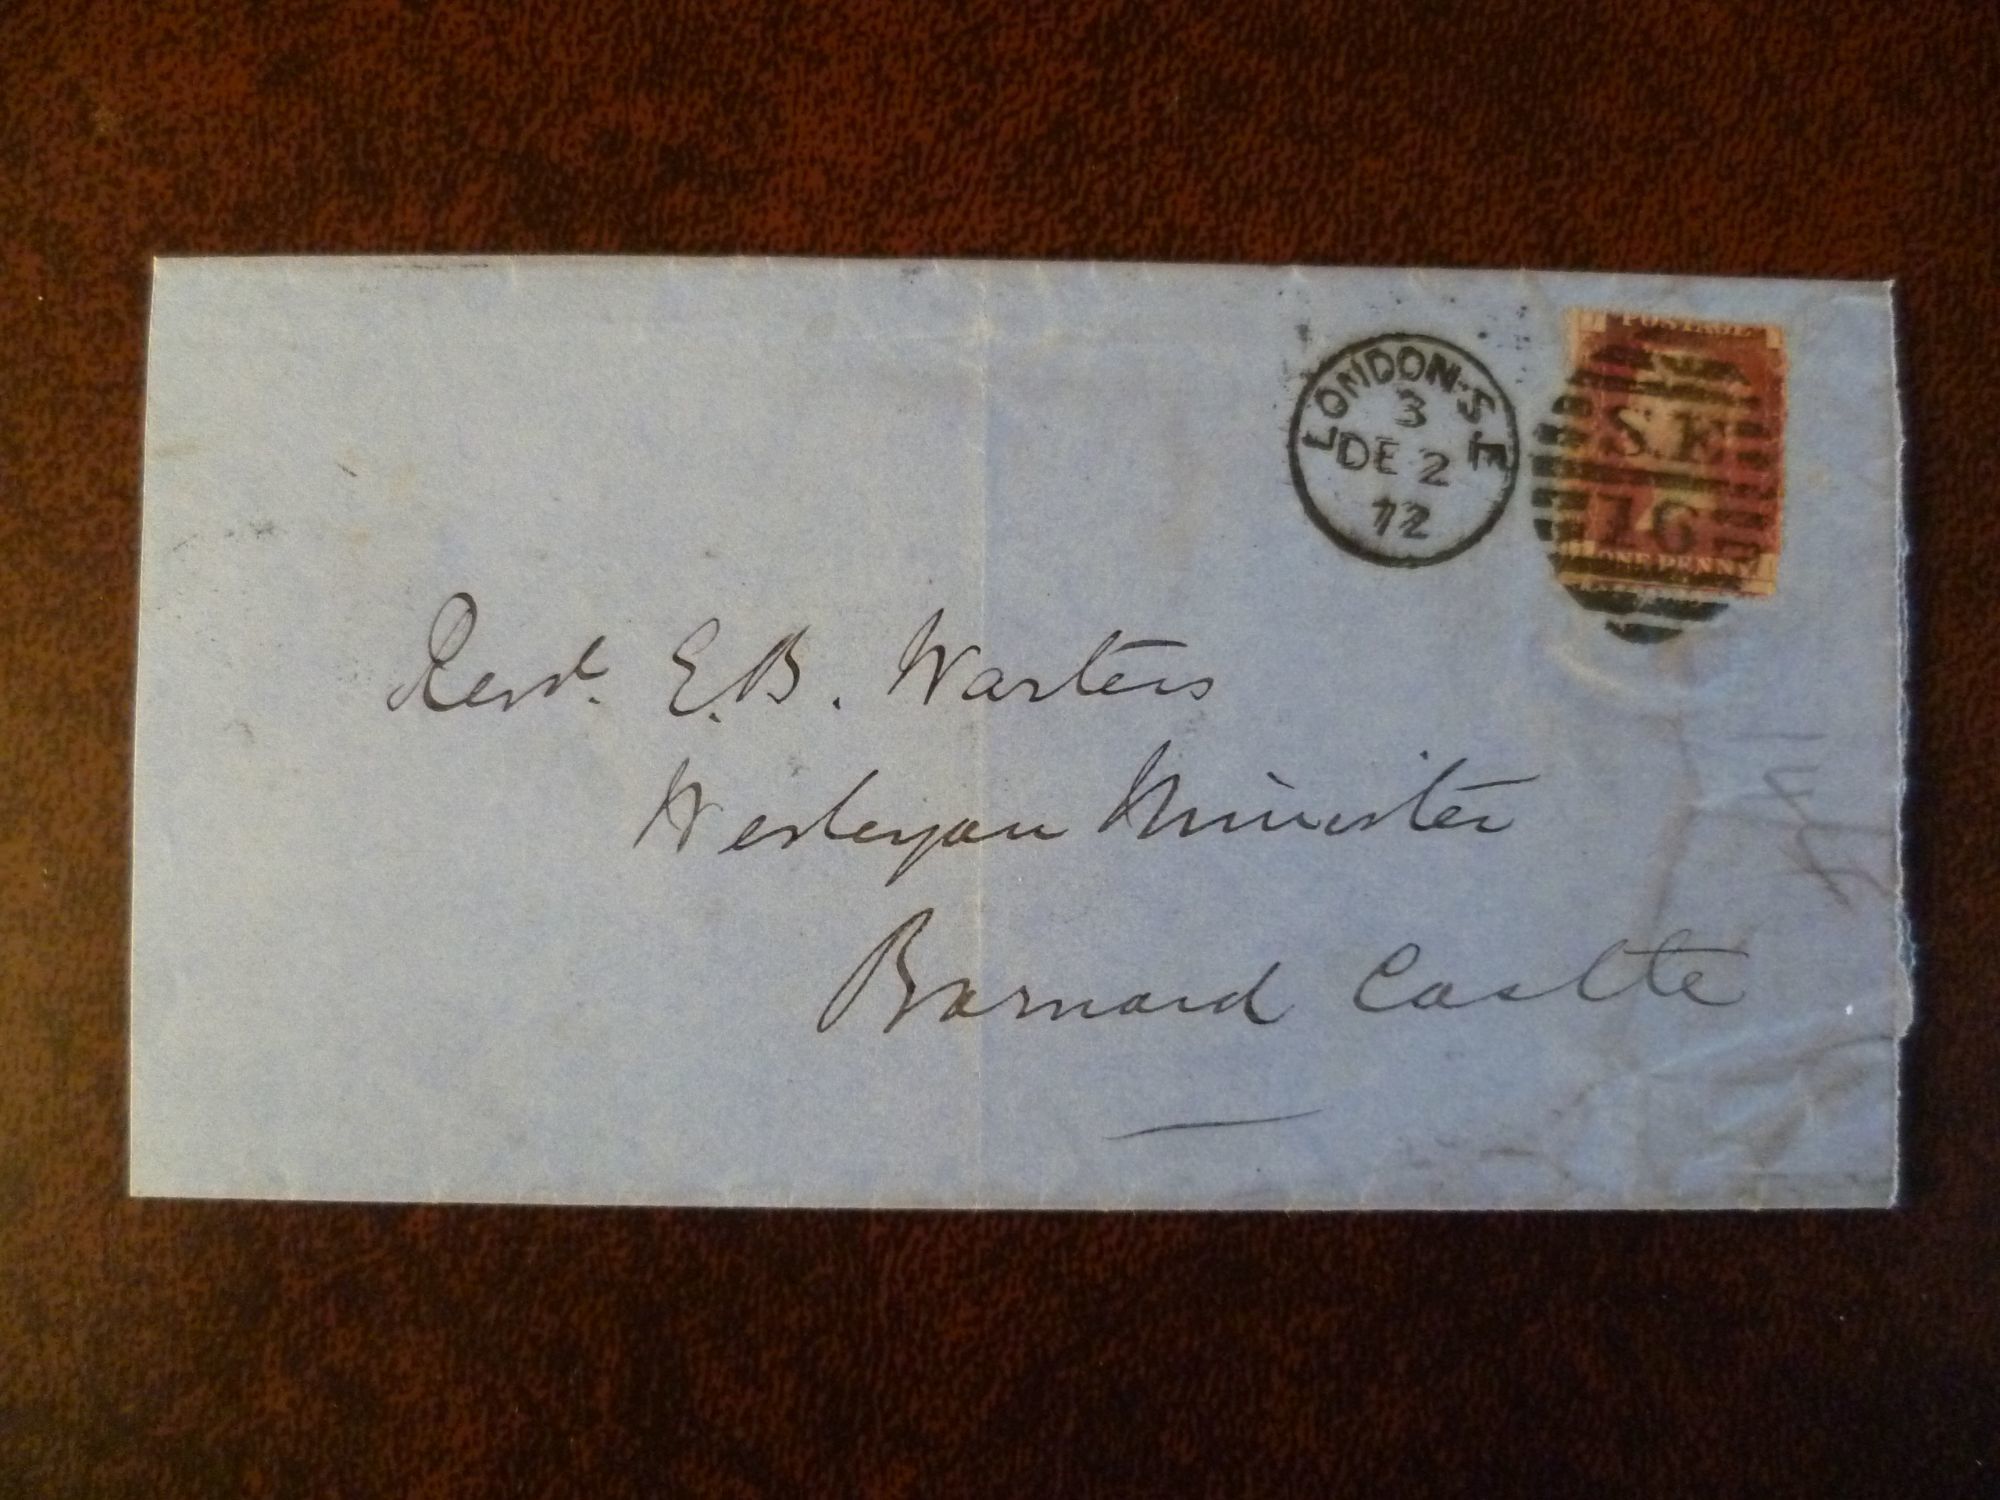 POSTAGE
LONDON·S.E
3
DE 2
72
S.E
16
ONE PENNY
Revd. E.B. Warters
Wesleyan Minister
Barnard Castle